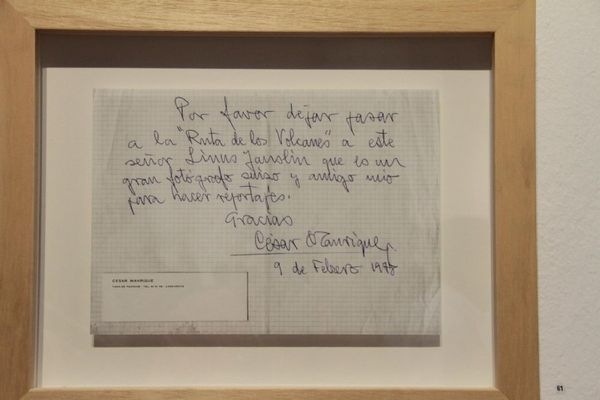 Por favor dejar pasar
a la "Ruta de los Volcanes" a este
señor Linus Janolin que es un
gran fotógrafo suizo y amigo mio
para hacer reportajes.
Gracias
César Manrique
9 de Febrero 1978
CESAR MANRIQUE
61